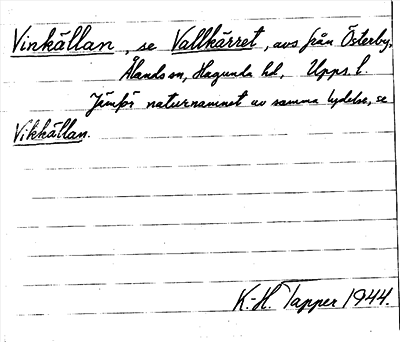 Vinkällan, se Vallkärret, avs från Österby,
Ålands sn, Hagunda hd, Upps. l.
Jämför naturnamnet av samma lydelse, se
Vikkällan.
K.-H. Tapper 1944.